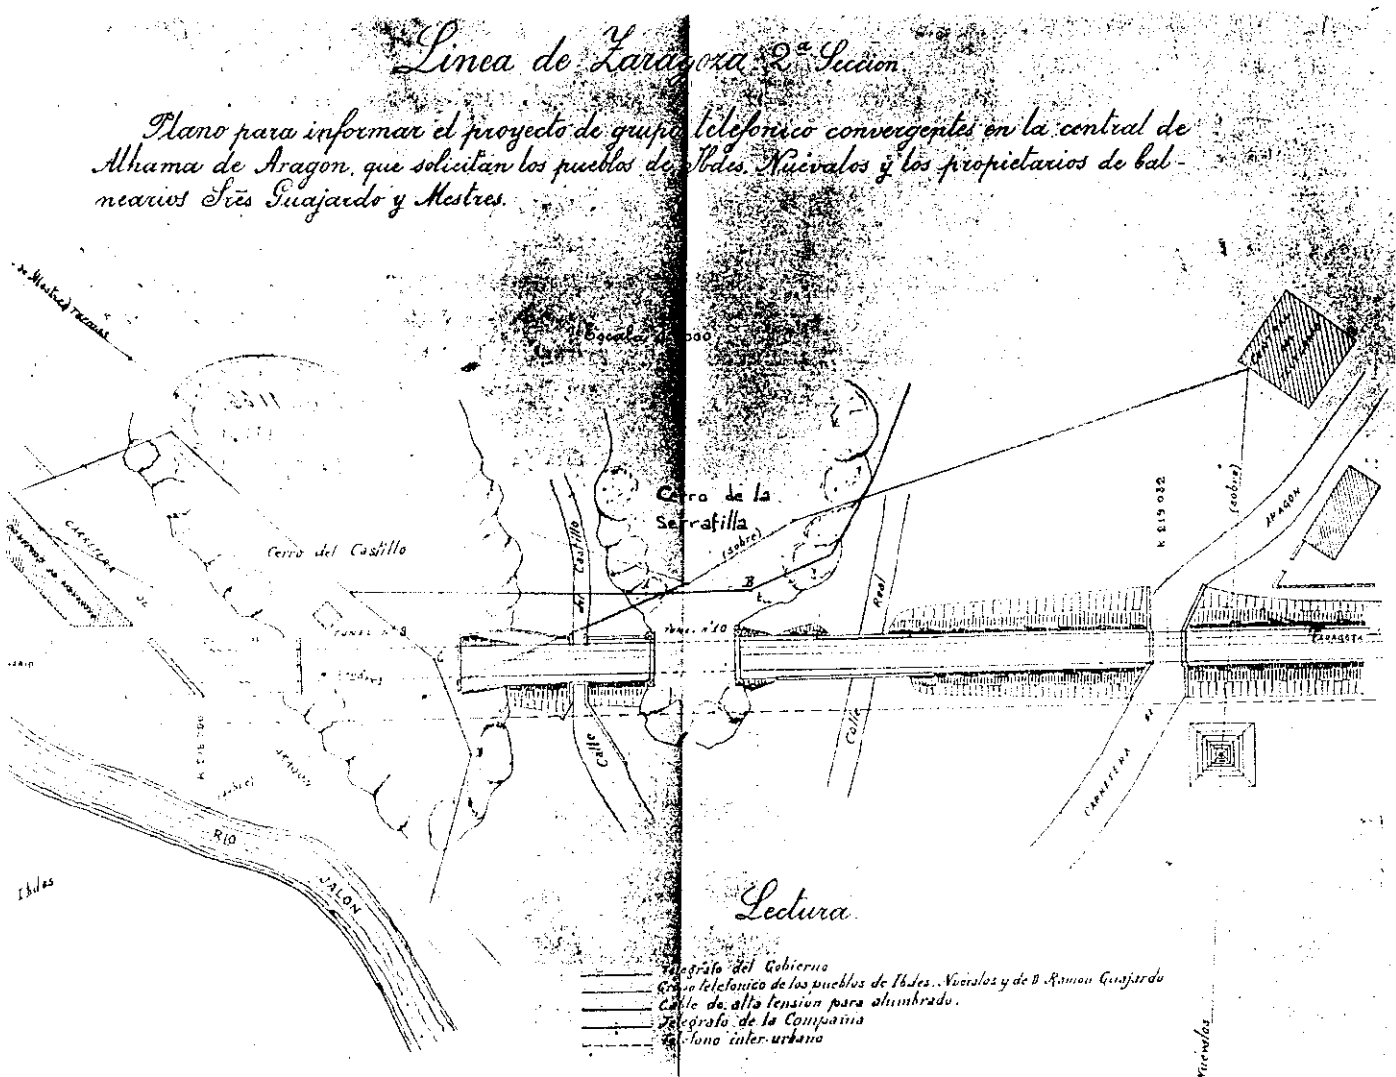 Linea de Zaragoza 2ª Sección
Plano para informar el proyecto de grupo telefonico convergentes en la central de
Alhama de Aragon, que solicitan los pueblos de Ibdes, Nuévalos y los propietarios de bal-
nearios Sres Guajardo y Mestres.
de Mestres
Escala
Cerro de la
Serratilla
(sobre)
Cerro del Castillo
CARRETERA
DE
ARAGON
TUNEL nº 9
del Castillo
Calle
B
TUNEL nº 10
Real
Calle
K 219 032
(sobre)
ARAGON
ZARAGOZA
CARRETERA
DE
(sobre)
RIO
JALON
Ibdes
Nuévalos
Lectura
Telegrafo del Gobierno
Grupo telefonico de los pueblos de Ibdes, Nuevalos y de D Ramon Guajardo
Cable de alta tension para alumbrado.
Telegrafo de la Compañia
Telefono inter-urbano